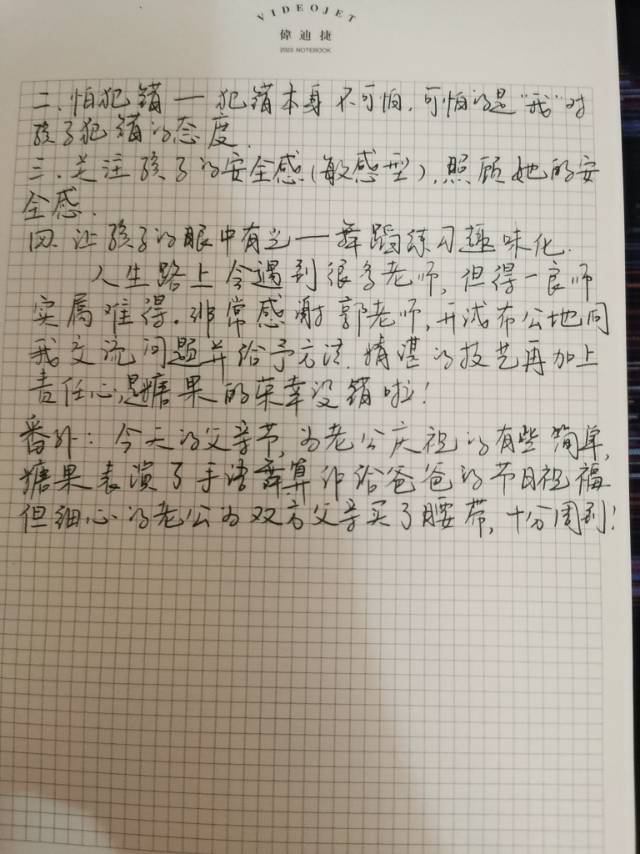 VIDEOJET
偉迪捷
2023 NOTEBOOK
二、怕犯错 — 犯错本身不可怕，可怕的是“我”对
孩子犯错的态度.
三、关注孩子的安全感(敏感型),照顾她的安
全感.
四、让孩子的眼中有光 — 舞蹈练习趣味化.
人生路上会遇到很多老师，但得一良师
实属难得。非常感谢郭老师，开诚布公地同
我交流问题并给予方法.精湛的技艺再加上
责任心,是糖果的荣幸没错啦！
番外：今天的父亲节，为老公庆祝的有些简单,
糖果表演了手语舞算作给爸爸的节日祝福
但细心的老公为双方父亲买了腰带，十分周到！